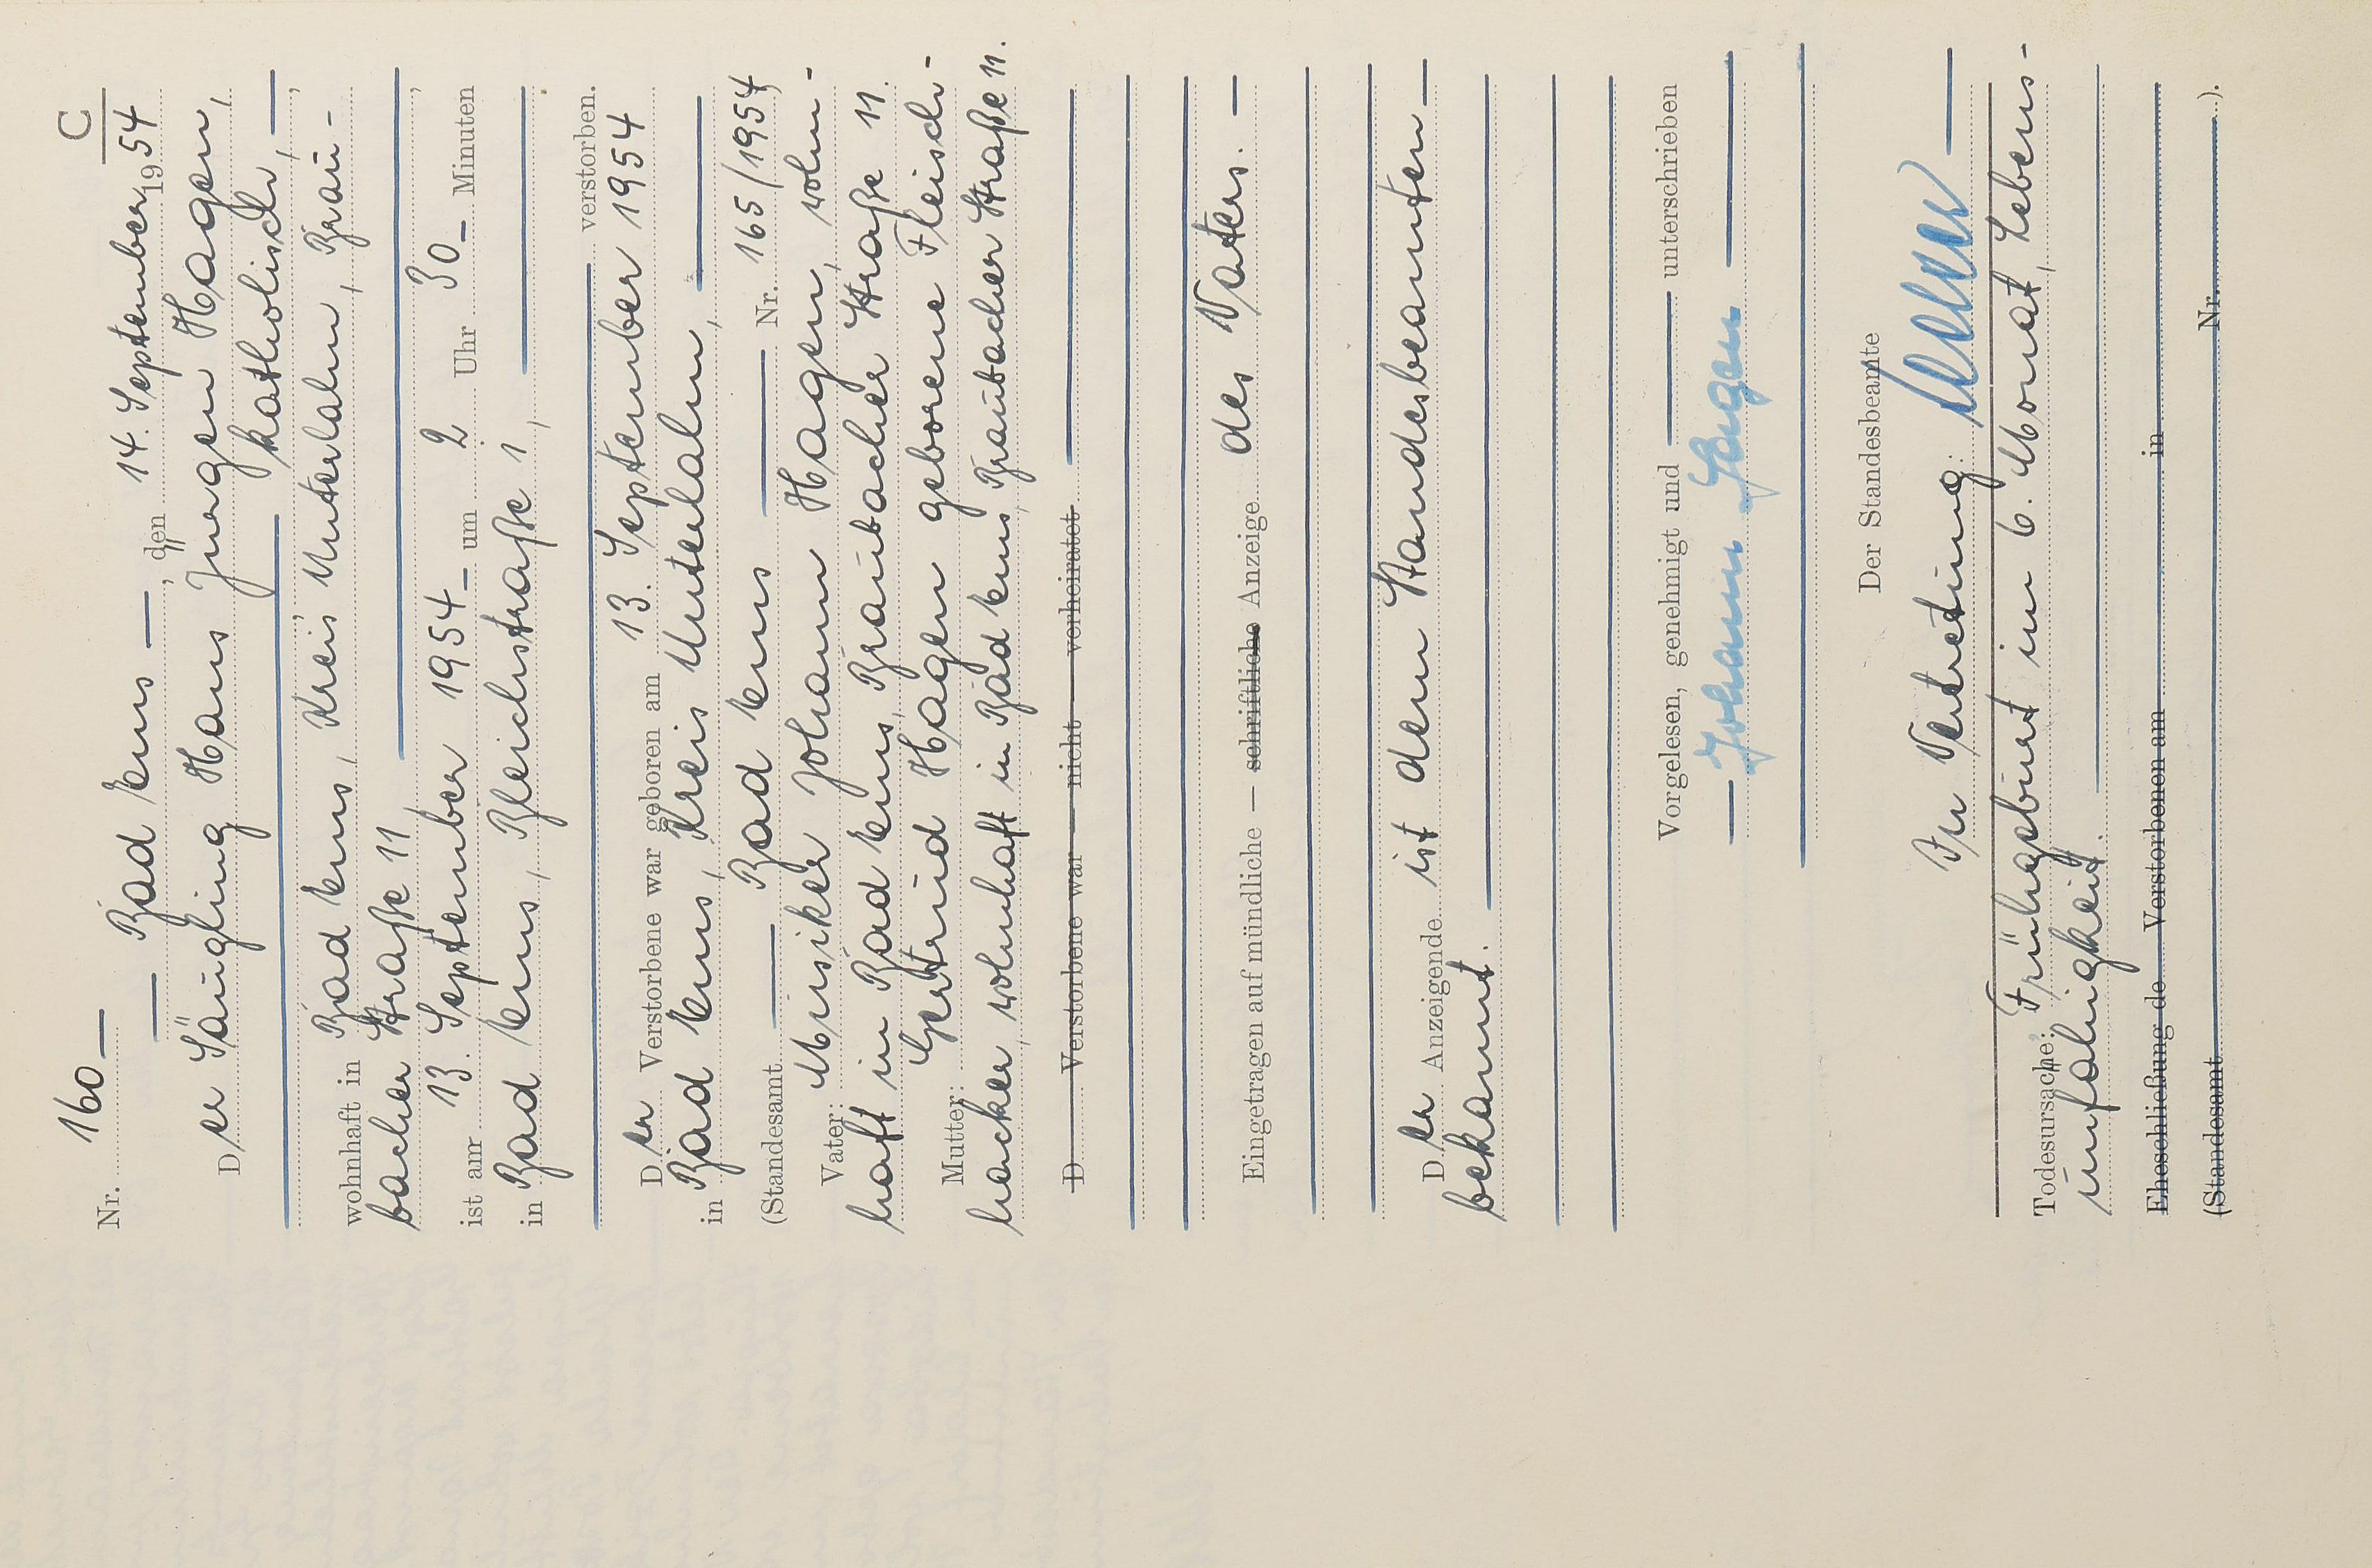 C
Nr. 160
Bad Ems, den 14. September 1954
Der Säugling Hans Jürgen Hagen,
katholisch,
wohnhaft in Bad Ems, Kreis Unterlahn, Brau-
bacher Straße 11,
ist am 13. September 1954 um 2 Uhr 30 Minuten
in Bad Ems, Bleichstraße 1,
verstorben.
Der Verstorbene war geboren am 13. September 1954
in Bad Ems, Kreis Unterlahn,
(Standesamt Bad Ems Nr. 165/1954)
Vater: Musiker Johann Hagen, wohn-
haft in Bad Ems, Braubacher Straße 11.
Mutter: Gertrud Hagen geborene Fleisch-
hacker, wohnhaft in Bad Ems, Braubacher Straße 11.
D Verstorbene war — nicht — verheiratet
Eingetragen auf mündliche — schriftliche Anzeige des Vaters.
Der Anzeigende ist dem Standesbeamten
bekannt.
Vorgelesen, genehmigt und unterschrieben
Johann Hagen
Der Standesbeamte
In Vertretung:
Todesursache: Frühgeburt im 6. Monat, Lebens-
unfähigkeit.
Eheschließung de Verstorbenen am in
(Standesamt Nr. ).